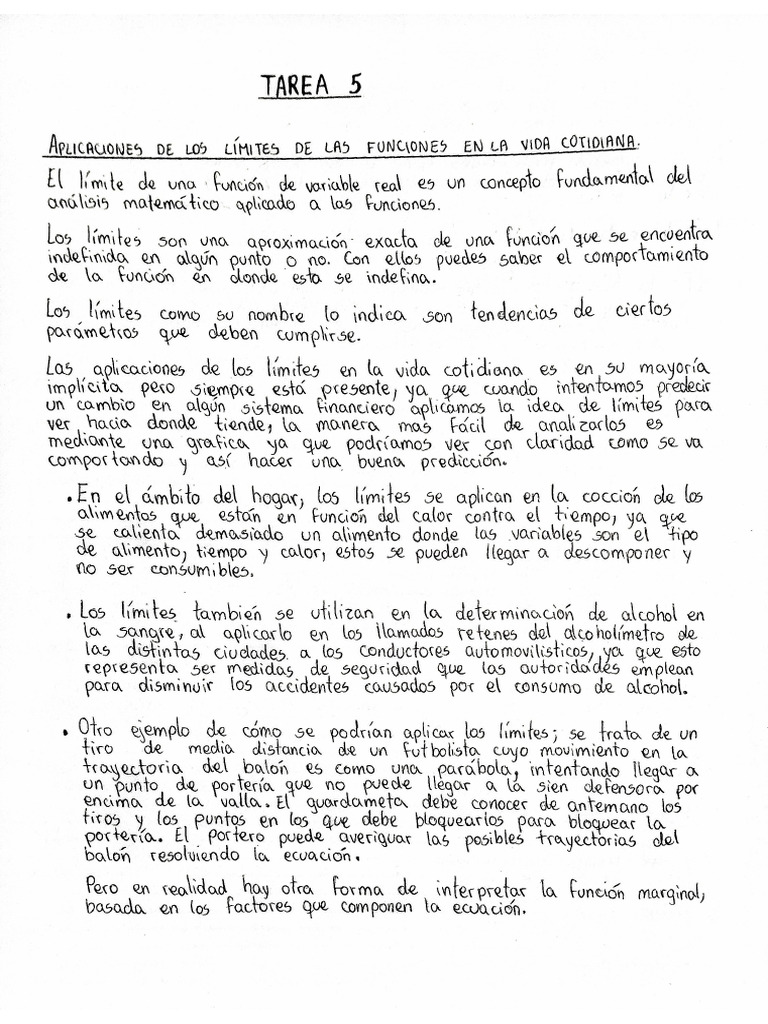 TAREA 5
APLICACIONES DE LOS LÍMITES DE LAS FUNCIONES EN LA VIDA COTIDIANA.
El límite de una función de variable real es un concepto fundamental del
análisis matemático aplicado a las funciones.
Los límites son una aproximación exacta de una función que se encuentra
indefinida en algún punto o no. Con ellos puedes saber el comportamiento
de la función en donde esta se indefina.
Los límites como su nombre lo indica son tendencias de ciertos
parámetros que deben cumplirse.
Las aplicaciones de los límites en la vida cotidiana es en su mayoría
implícita pero siempre está presente, ya que cuando intentamos predecir
un cambio en algún sistema financiero aplicamos la idea de límites para
ver hacia donde tiende, la manera mas fácil de analizarlos es
mediante una grafica ya que podríamos ver con claridad como se va
comportando y así hacer una buena predicción.
• En el ámbito del hogar, los límites se aplican en la cocción de los
alimentos que están en función del calor contra el tiempo, ya que
se calienta demasiado un alimento donde las variables son el tipo
de alimento, tiempo y calor, estos se pueden llegar a descomponer y
no ser consumibles.
• Los límites también se utilizan en la determinación de alcohol en
la sangre, al aplicarlo en los llamados retenes del alcoholímetro de
las distintas ciudades a los conductores automovilísticos, ya que esto
representa ser medidas de seguridad que las autoridades emplean
para disminuir los accidentes causados por el consumo de alcohol.
• Otro ejemplo de cómo se podrían aplicar los límites; se trata de un
tiro de media distancia de un futbolista cuyo movimiento en la
trayectoria del balón es como una parábola, intentando llegar a
un punto de portería que no puede llegar a la sien defensora por
encima de la valla. El guardameta debe conocer de antemano los
tiros y los puntos en los que debe bloquearlos para bloquear la
portería. El portero puede averiguar las posibles trayectorias del
balón resolviendo la ecuación.
Pero en realidad hay otra forma de interpretar la función marginal,
basada en los factores que componen la ecuación.